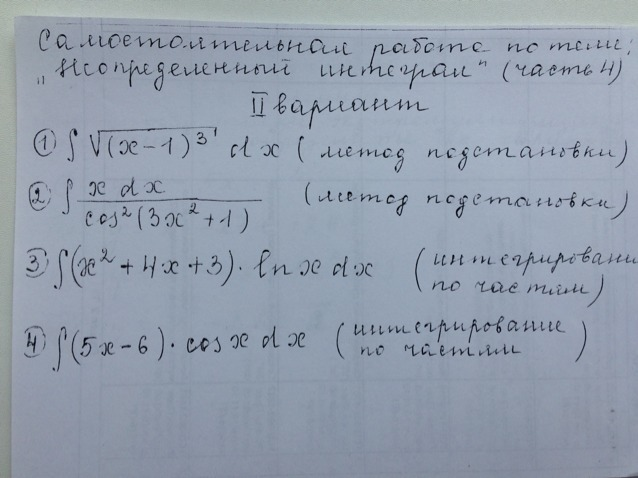 Самостоятельная работа по теме:
"Неопределенный интеграл" (часть 4)
II вариант
① ∫ √(x-1)³ dx ( метод подстановки)
② ∫ x dx / cos²(3x²+1) (метод подстановки)
③ ∫(x²+4x+3)·ln x dx (интегрировани
по частям)
④ ∫(5x-6)·cos x dx (интегрирование
по частям)